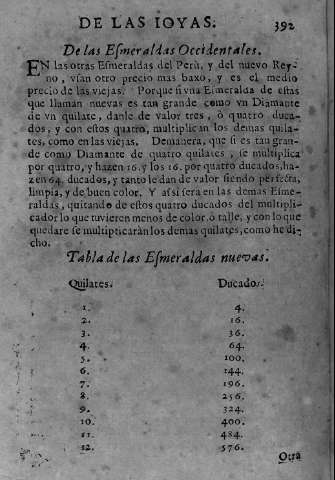 DE LAS IOYAS. 392
De las Esmeraldas Occidentales.
EN las otras Esmeraldas del Perù, y del nuevo Rey-
no, vsan otro precio mas baxo, y es el medio
precio de las viejas. Porque si vna Esmeralda de estas
que llaman nuevas es tan grande como vn Diamante
de vn quilate, danle de valor tres, ò quatro duca-
dos, y con estos quatro, multiplican los demas quila-
tes, como en las viejas. Demanera, que si es tan gran-
de como Diamante de quatro quilates, se multiplica
por quatro, y hazen 16. y los 16. por quatro ducados, ha-
zen 64. ducados, y tanto le dan de valor siendo perfecta,
limpia, y de buen color. Y assi serà en las demas Esme-
raldas, quitando de estos quatro ducados del multipli-
cador lo que tuvieren menos de color, ò talle, y con lo que
quedare se multiplicaràn los demas quilates, como he di-
cho.
Tabla de las Esmeraldas nuevas.
Quilates. Ducados.
1. 4.
2. 16.
3. 36.
4. 64.
5. 100.
6. 144.
7. 196.
8. 256.
9. 324.
10. 400.
11. 484.
12. 576.
Otra